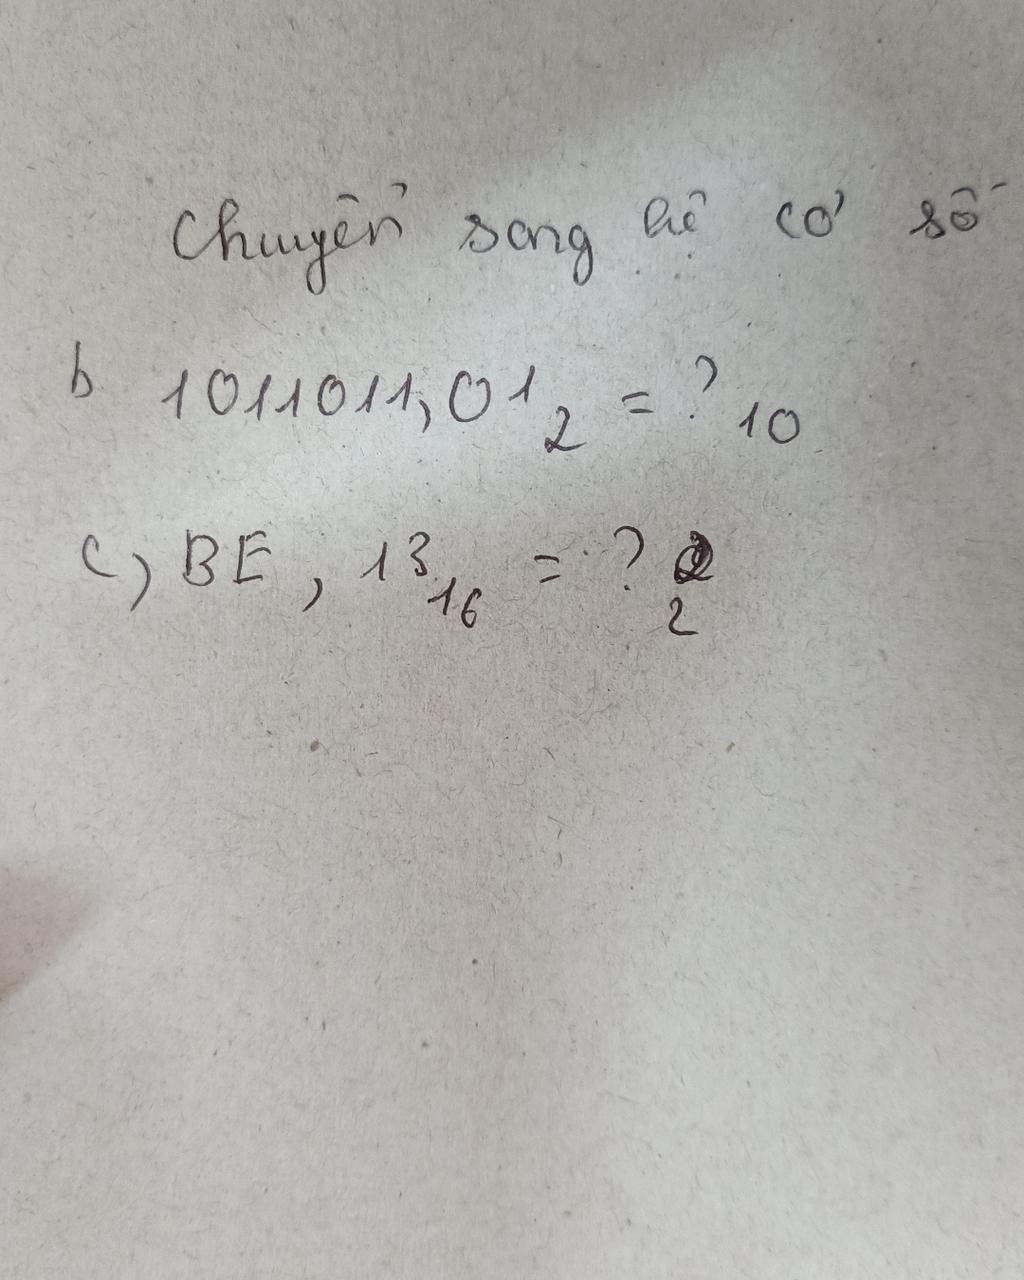 Chuyển sang hệ cơ số
b 1011011,01₂ = ?₁₀
c, BE, 13₁₆ = ?₂